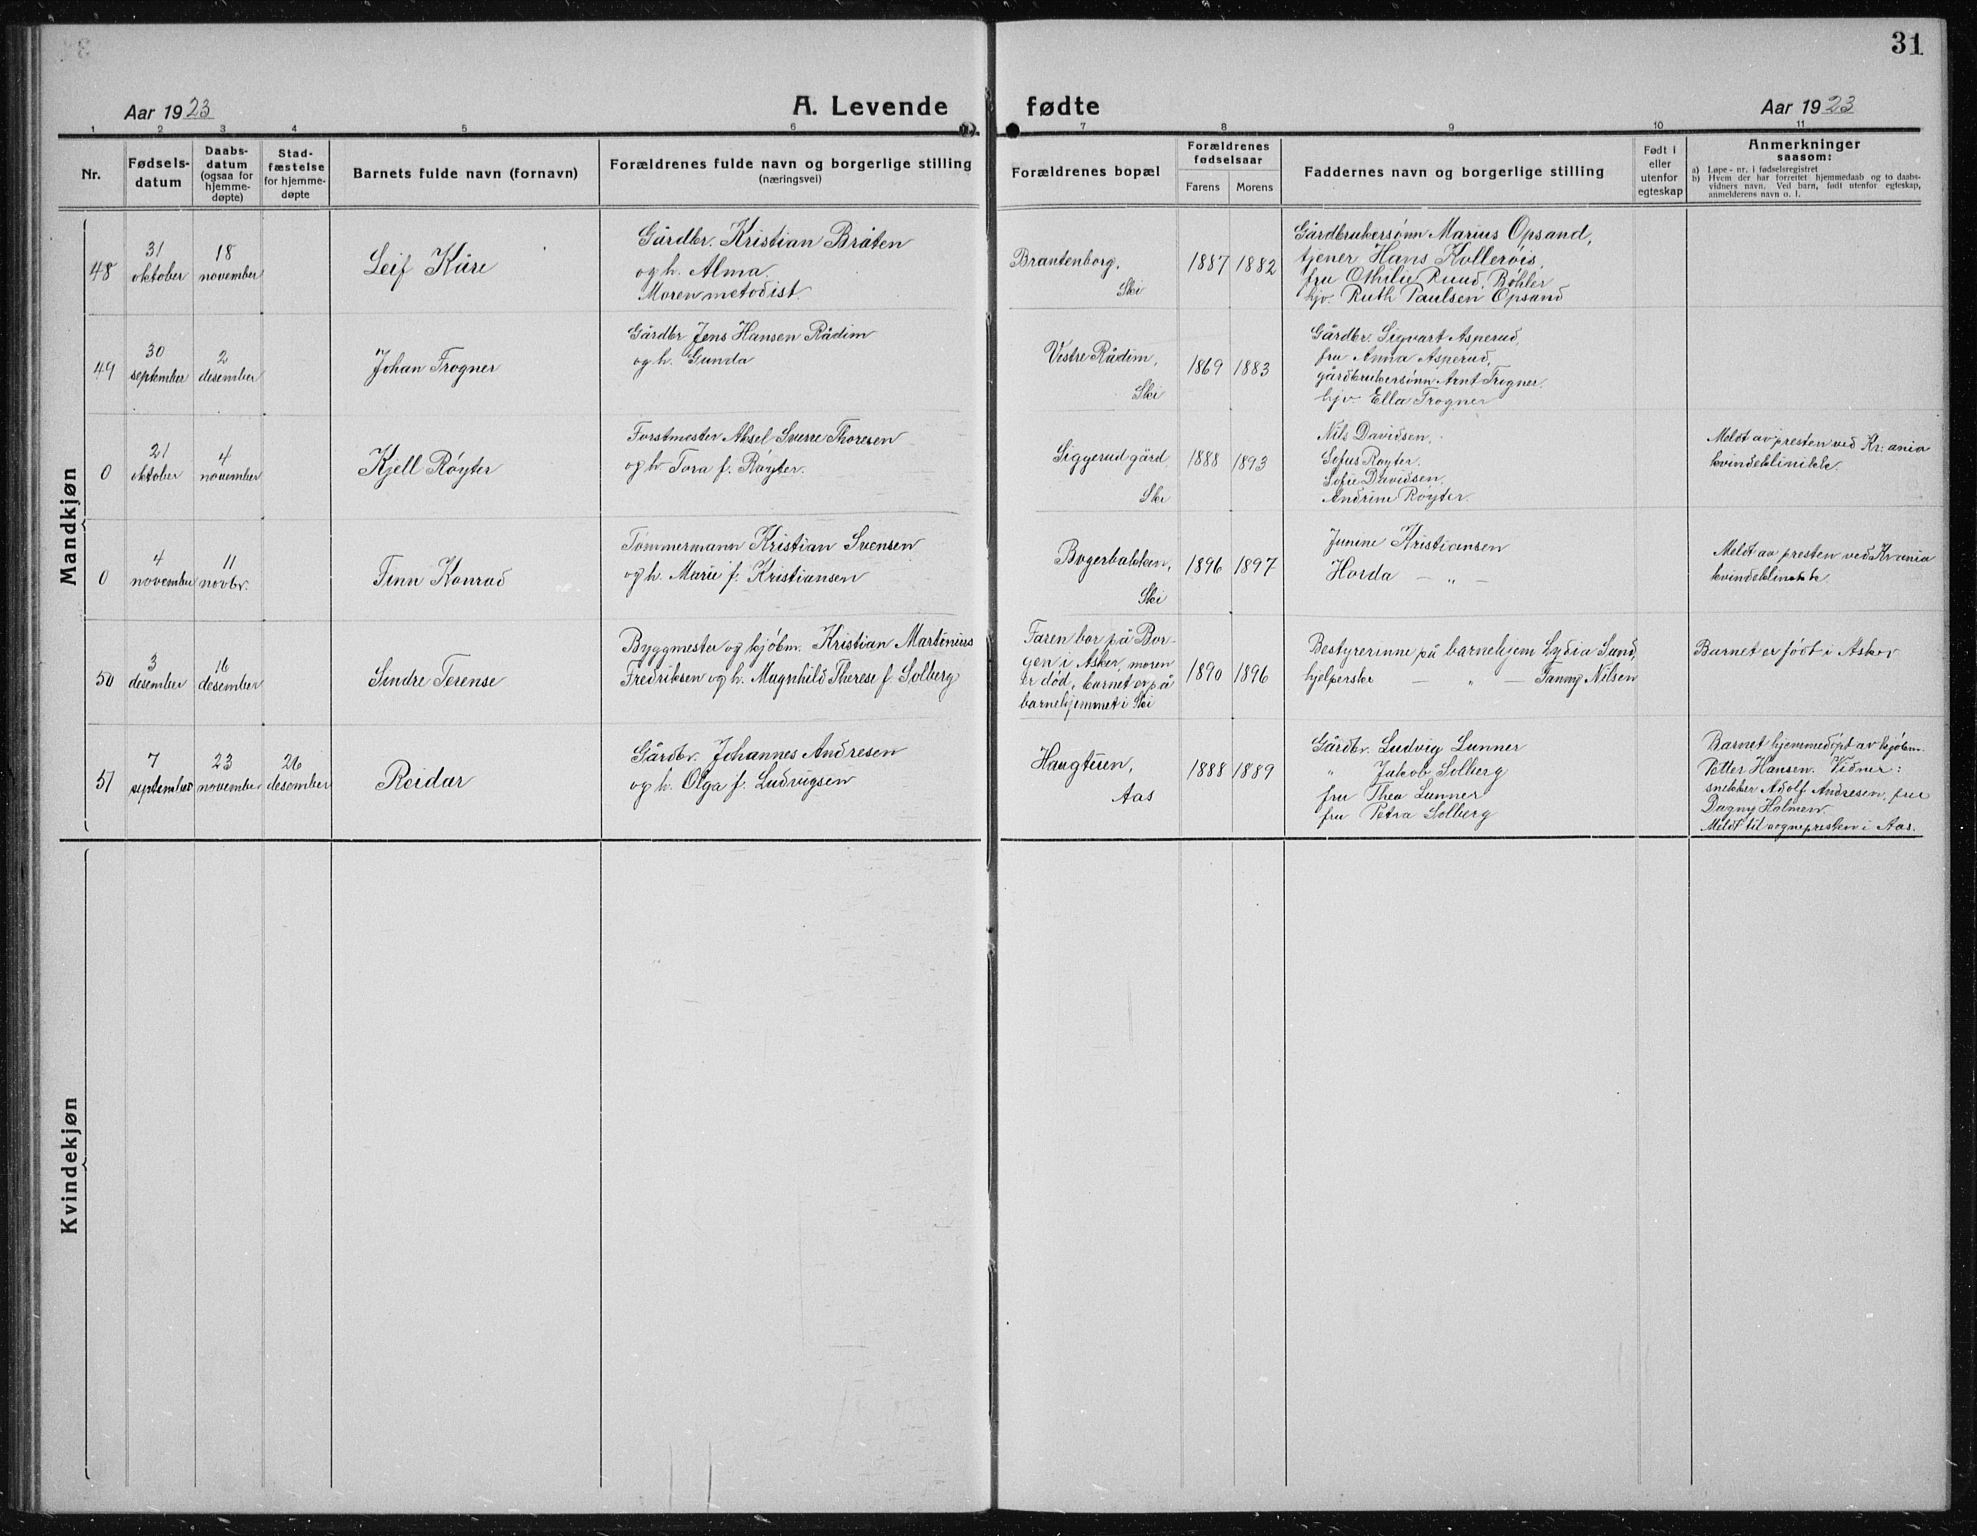 31
Aar 1923
A. Levende fødte
Aar 1923
1 2 3 4 5 6 7 8 9 10 11
Nr.
Fødsels-
datum
Daabs-
datum
(ogsaa for
hjemme-
døpte)
Stad-
fæstelse
for hjemme-
døpte
Barnets fulde navn (fornavn)
Forældrenes fulde navn og borgerlige stilling
(næringsvei)
Forældrenes bopæl
Forældrenes
fødselsaar
Farens Morens
Faddernes navn og borgerlige stilling
Født i
eller
utenfor
egteskap
Anmerkninger
saasom:
a) Løpe - nr. i fødselsregistret
b) Hvem der har forrettet hjemmedaab og to daabs-
vidners navn. Ved barn, født utenfor egteskap,
anmelderens navn o. l.
Mandkjøn
48
31
oktober
18
november
Leif Kåre
Gårdbr. Kristian Bråten
og h. Alma.
Moren metodist.
Brantenborg,
Ski
1887 1882
Gårdbrukersønn Marius Opsand,
tjener Hans Kollerøis,
fru Othilie Ruud, Bøhler
hjv. Ruth Paulsen Opsand
49
30
september
2
desember
Johan Trogner
Gårdbr. Jens Hansen Rådim
og h. Gunda
Vestre Rådim,
Ski
1869 1883
Gårdbr. Sigvart Asperud,
fru Anna Asperud,
gårdbrukersønn Arnt Trogner.
hjv. Ella Trogner
0
21
oktober
4
november
Kjell Røyter
Forstmester Aksel Sverre Thoresen
og h. Tora f. Røyter.
Siggerud gård,
Ski
1888 1893
Nils Davidsen,
Sofus Røyter.
Sofie Davidsen.
Andrine Røyter.
Meldt av presten ved Kr:ania
kvindeklinikk.
0
4
november
11
novbr.
Finn Konrad
Tømmermann Kristian Svensen
og h. Marie f. Kristiansen
Bogerbakken,
Ski
1896 1897
Junine Kristiansen
Horda — „ —
Meldt av presten ved Kr.ania
kvindeklinikk.
50
3
desember
16
desember
Sindre Terense
Byggmester og kjøbm. Kristian Martinius
Fredriksen og h. Magnhild Therese f. Solberg
Faren bor på Bor-
gen i Asker, moren
er død, barnet er på
barnehjemmet i Ski
1890 1896
Bestyrerinne på barnehjem Lydia Sund,
hjelperske — „ — Fanny Nilsen
Barnet er født i Asker
51
7
september
23
november
26
desember
Reidar
Gårdbr. Johannes Andresen
og h. Olga f. Ludvigsen
Haugtuen,
Aas
1888 1889
Gårdbr. Ludvig Lunner
„ Jakob Solberg
fru Thea Lunner
fru Petra Solberg
Barnet hjemmedøpt av kjøbm.
Petter Hansen. Vidner:
snekker Adolf Andresen, fru
Dagny Holmen.
Meldt til sognepresten i Aas.
Kvindekjøn